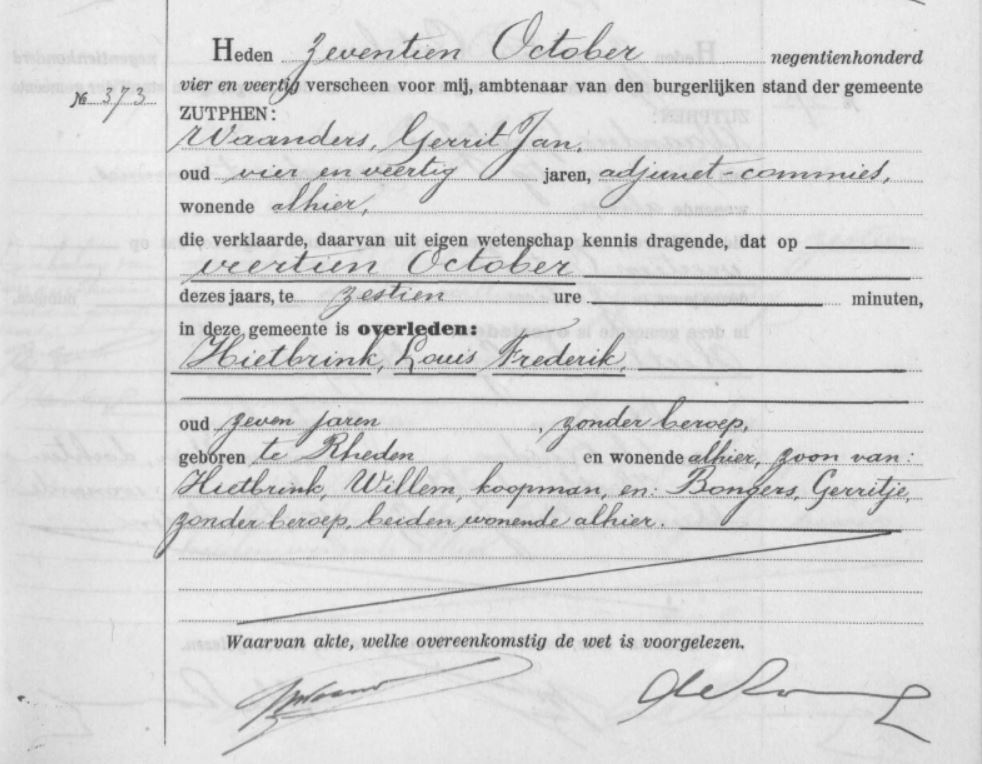 Heden zeventien October negentienhonderd
№ 373. vier en veertig verscheen voor mij, ambtenaar van den burgerlijken stand der gemeente
ZUTPHEN:
Waanders, Gerrit Jan,
oud vier en veertig jaren, adjunct-commies,
wonende alhier,
die verklaarde, daarvan uit eigen wetenschap kennis dragende, dat op
veertien October
dezes jaars, te zestien ure minuten,
in deze gemeente is overleden:
Hietbrink, Louis Frederik,
oud zeven jaren, zonder beroep,
geboren te Rheden en wonende alhier, zoon van:
Hietbrink, Willem, koopman, en: Bongers, Gerritje,
zonder beroep, beiden wonende alhier.
Waarvan akte, welke overeenkomstig de wet is voorgelezen.